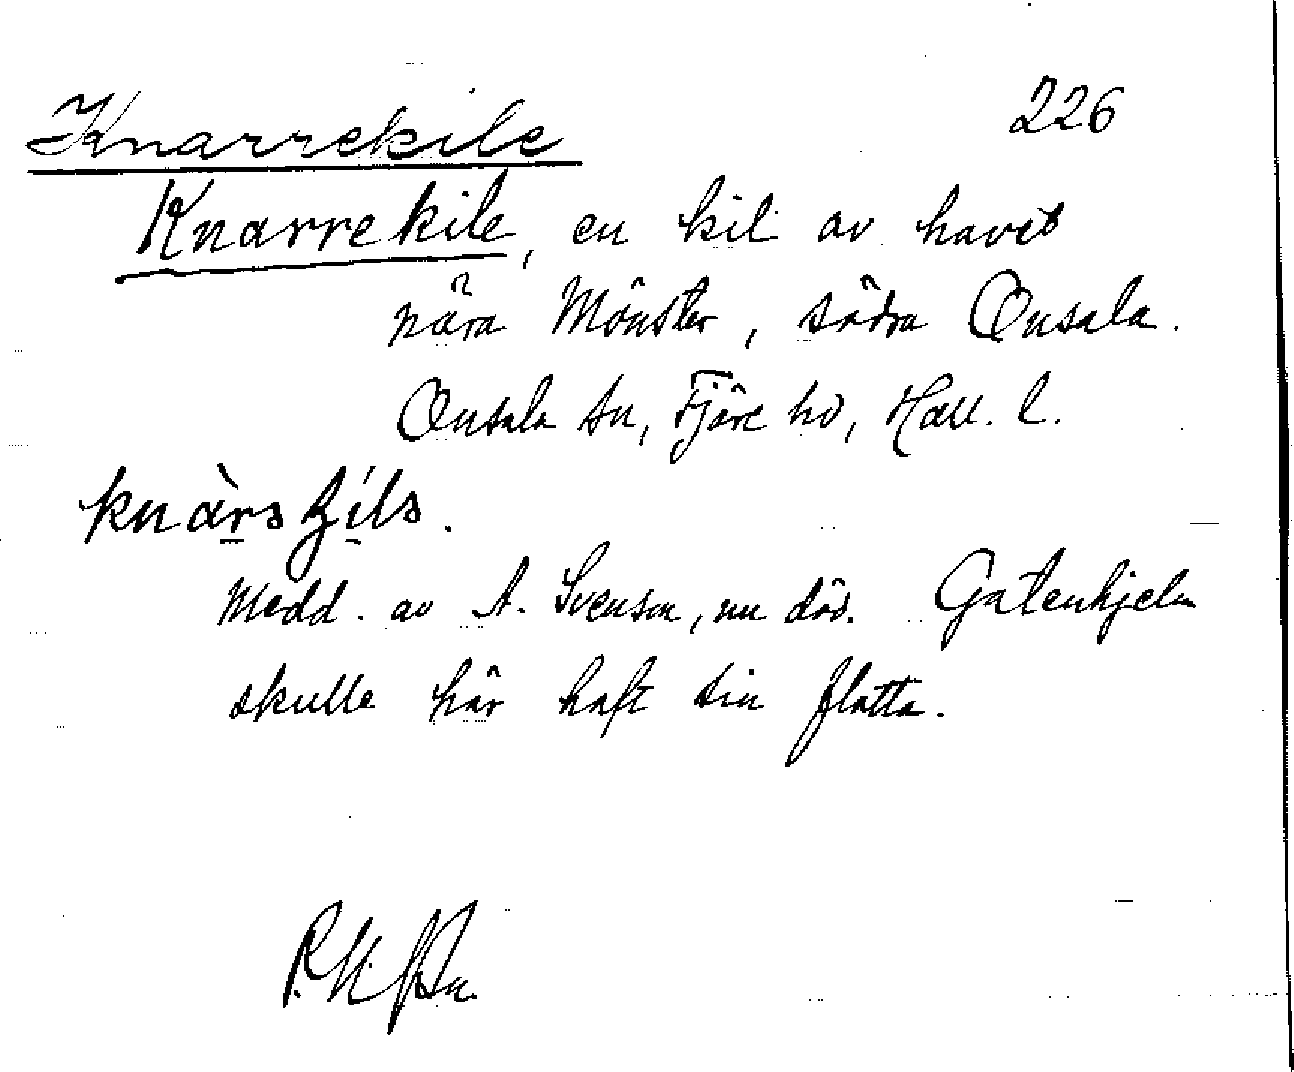 226
Knarrekile
Knarrekile, en kil av havet
nära Mönster, södra Onsala.
Onsala sn, Fjäre hd, Hall. l.
Medd. av A. Svenson, nu död. Gatenhjelm
skulle här haft sin flotta.